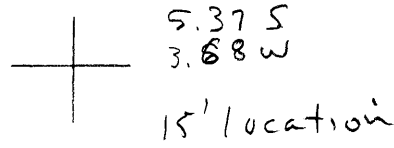 5.37 S
3.68 W
15' location